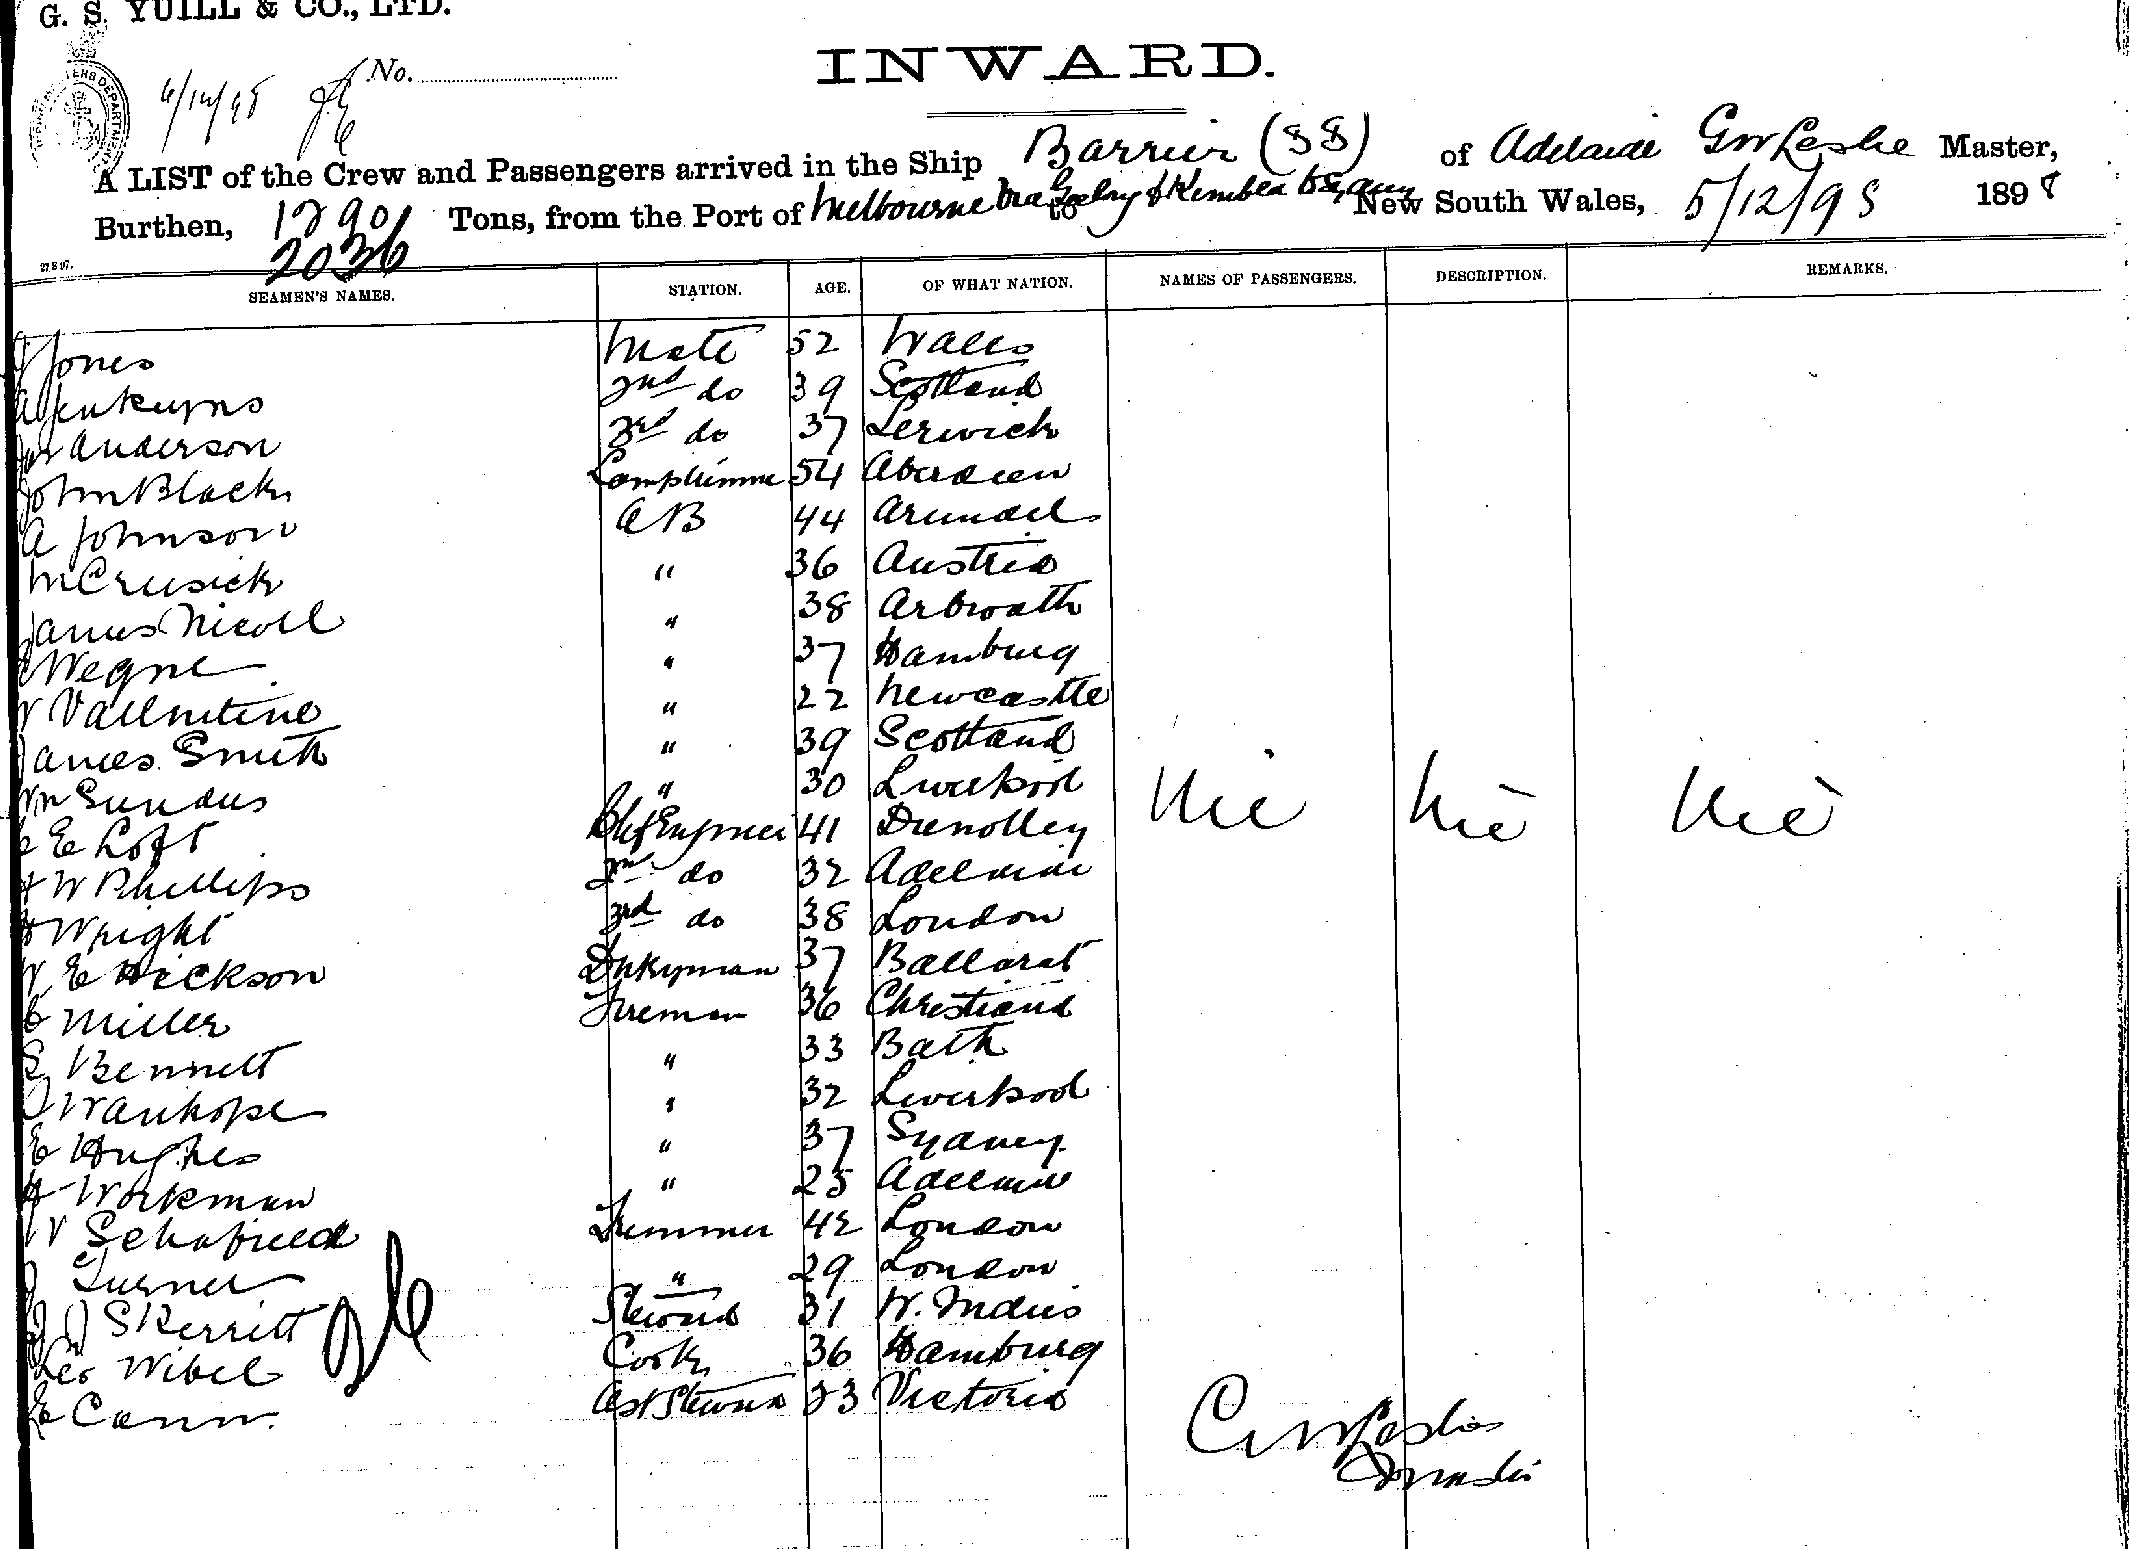 G. S. YUILL & CO., LTD.
6/12/98 No.
INWARD.
A LIST of the Crew and Passengers arrived in the Ship Barrier (SS) of Adelaide GW Leslie Master,
Burthen, 1290 Tons, from the Port of Melbourne via & Kembla to Sydney New South Wales, 5/12/98 1898
2036
27 8 97.
SEAMEN'S NAMES. STATION. AGE. OF WHAT NATION. NAMES OF PASSENGERS. DESCRIPTION. REMARKS.
Jones Mate 52 Wales
A Jenkyns 2nd do 39 Scotland
Jas Anderson 3rd do 37 Lerwick
John Black Lamptrimmer 54 Aberdeen
A Johnson AB 44 Arundel
M Crusich " 36 Austria
James Nicoll " 38 Arbroath
Wegne " 37 Hamburg
Vallentine " 22 Newcastle
James Smith " 39 Scotland
Wm " 30 Liverpool Nil Nil Nil
E Loft Chf Engineer 41 Dunolley
W Phillips 2nd do 32 Adelaide
Wright 3rd do 38 London
W E Dickson Dnkyman 37 Ballarat
C Miller Fireman 36 Christiana
S Bennett " 33 Bath
Wauhope " 32 Liverpool
E Hughes " 37 Sydney
Workman " 25 Adelaide
W Schofield Trimmer 42 London
J Turner " 29 London
J J Skerritt Steward 31 W. Indies
Leo Wibel Cook 36 Hamburg
E Cann. Ast Steward 23 Victoria
GW Leslie
Master